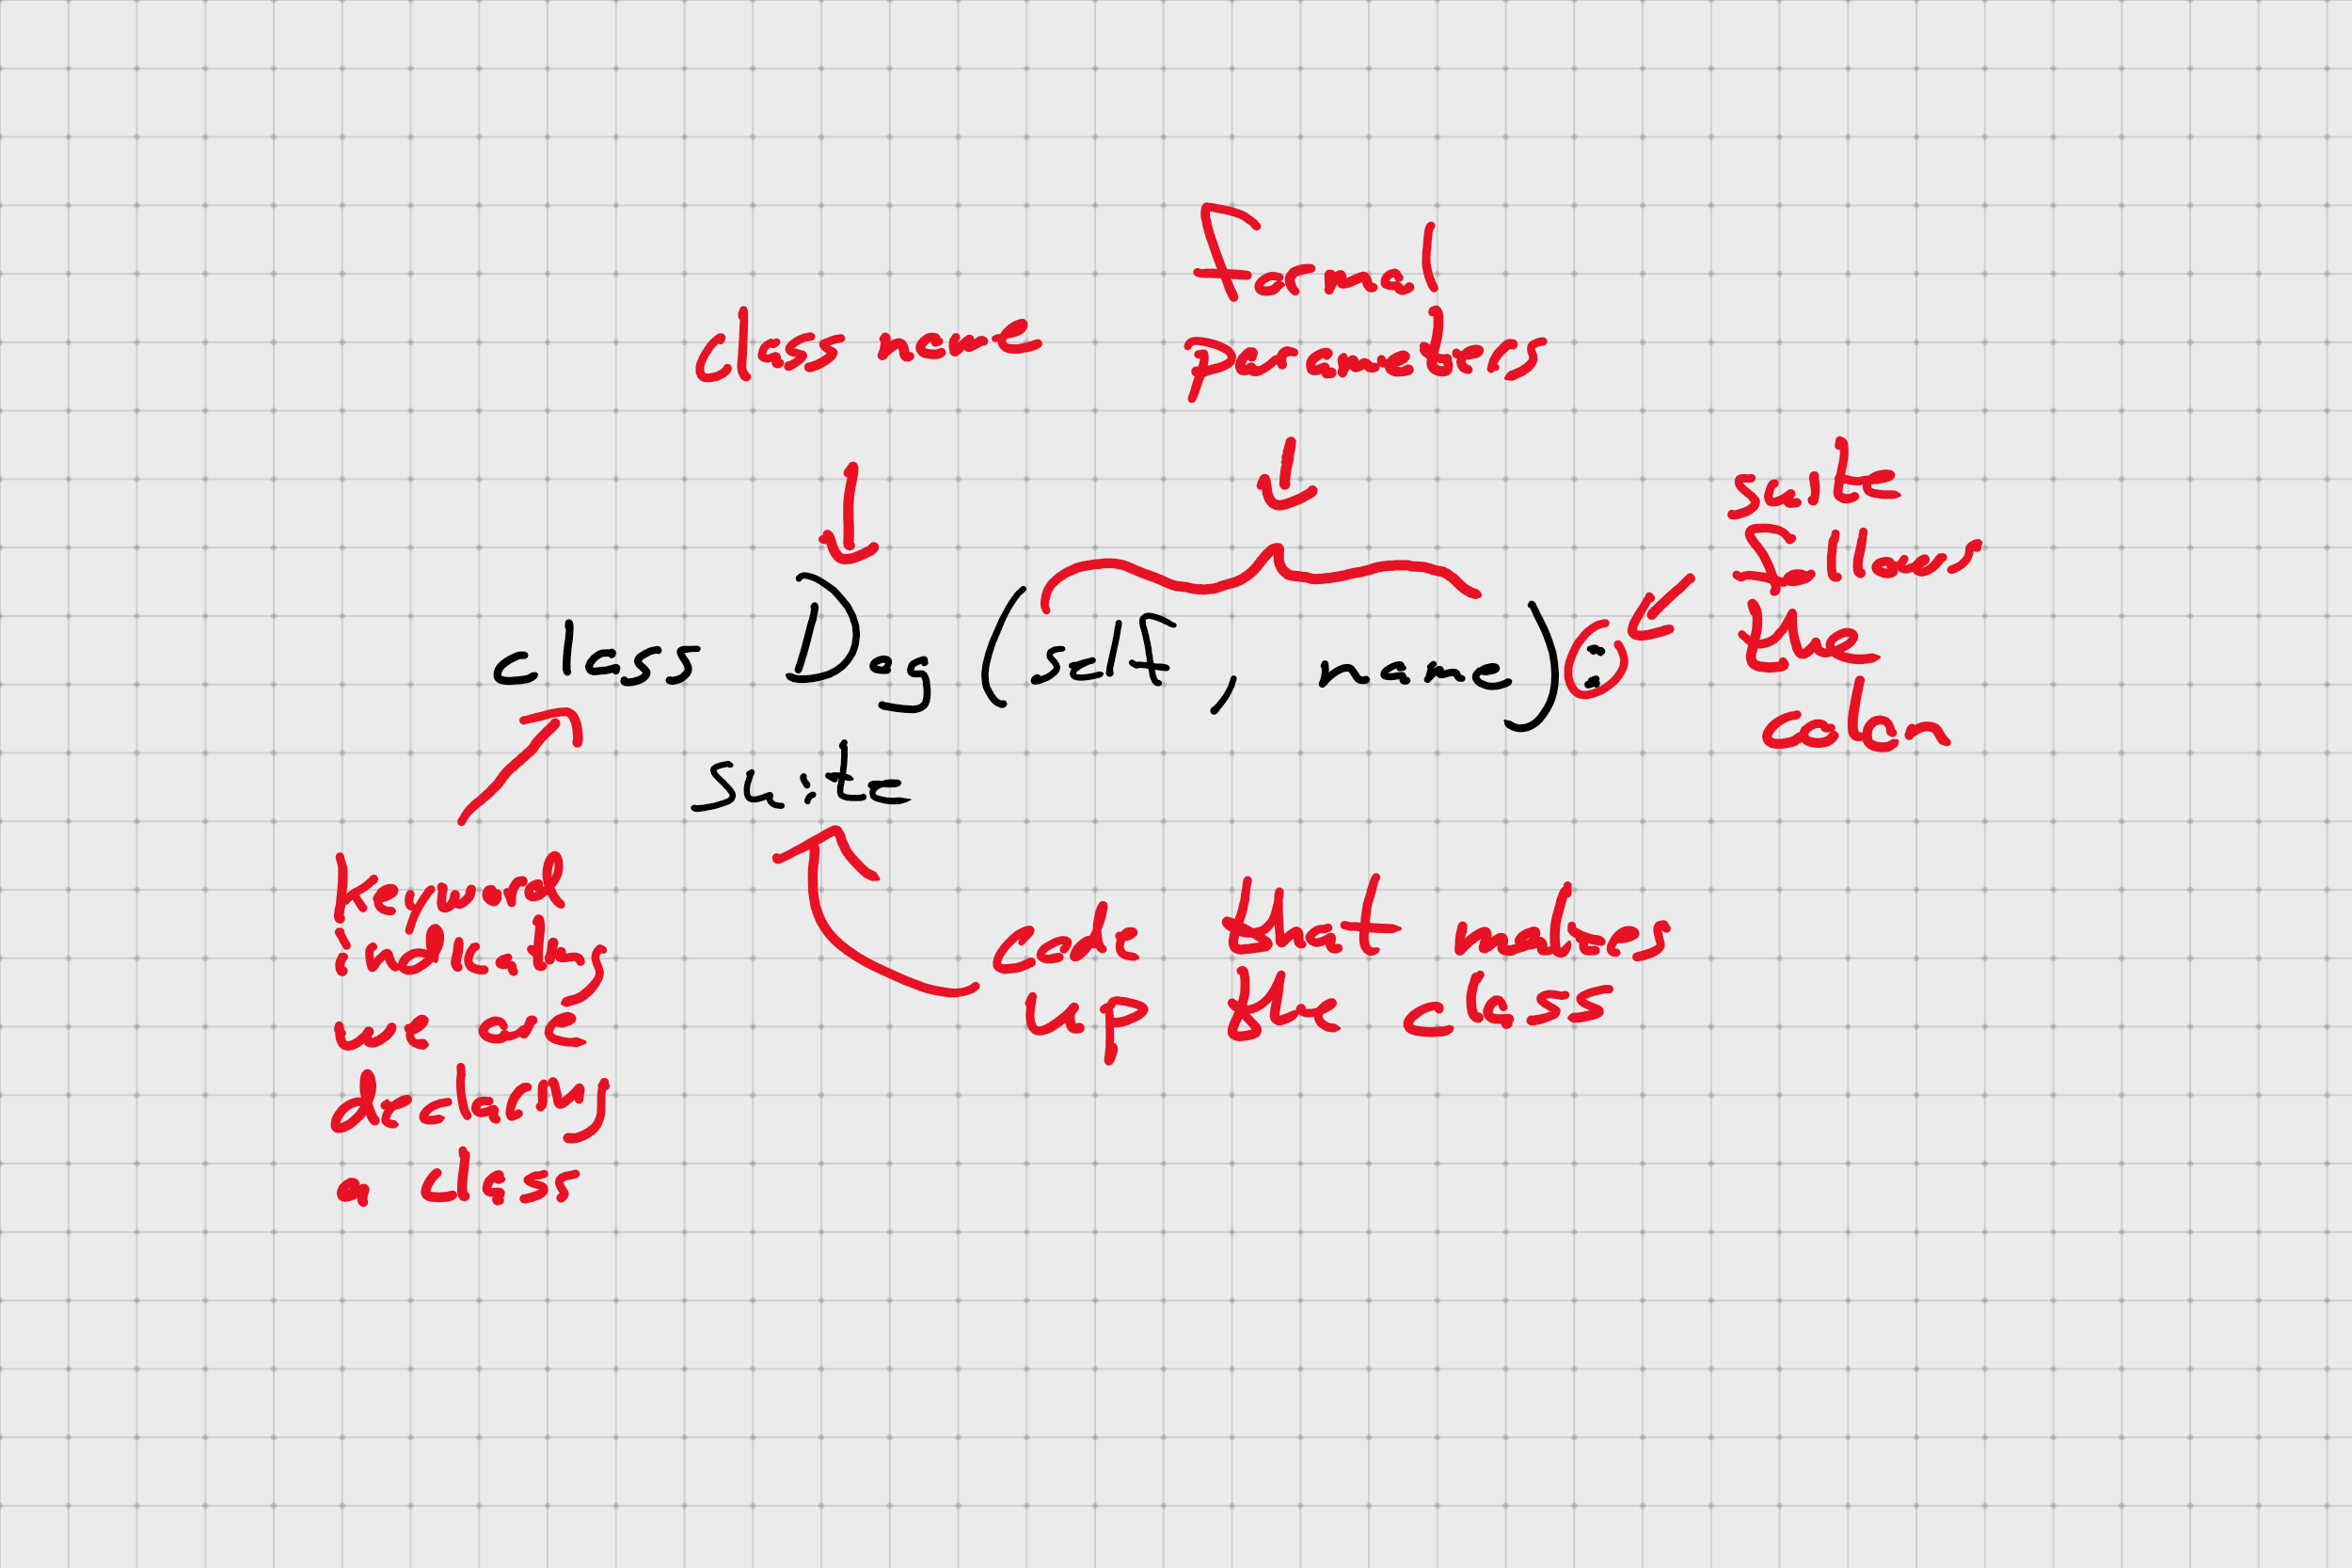 formal
class name
parameters
suite
follows
the
colon
class Dog (self, name):
suite
keyword
indicating
we are
declaring
a class
code that makes
up the class